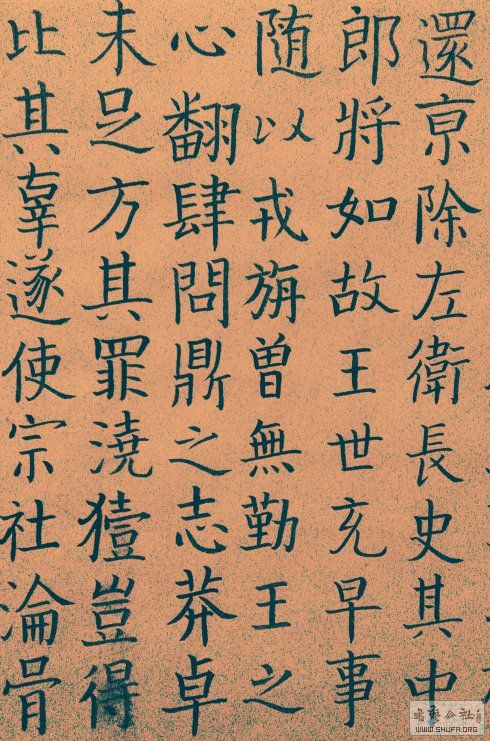 還亰除左衛長史其中
郎將如故王世充早事
随以戎旃曾無勤王之
心翻肆問鼎之志莽卓
未足方其罪澆豷豈得
比其辜遂使宗社淪胥
WWW.SHUFA.ORG